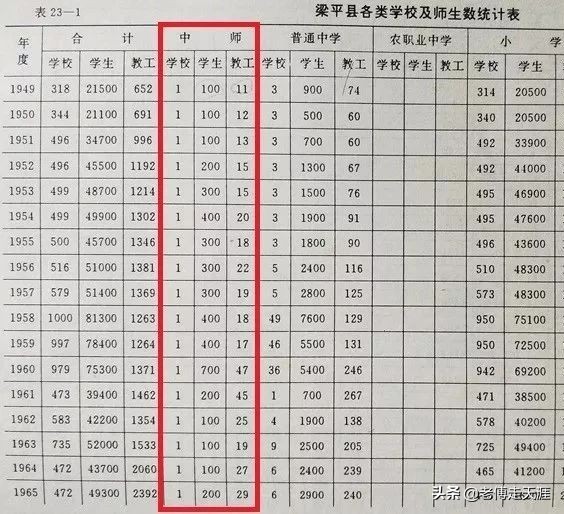 表 23—1 梁平县各类学校及师生数统计表
年度 合计 中师 普通中学 农职业中学 小学
学校 学生 教工 学校 学生 教工 学校 学生 教工 学校 学生 教工 学校 学生
1949 318 21500 652 1 100 11 3 900 74 314 20500
1950 344 21100 691 1 100 12 3 500 60 340 20500
1951 496 34700 996 1 100 13 3 700 60 492 33900
1952 496 45500 1192 1 200 15 3 1300 67 492 44000
1953 499 48700 1214 1 300 15 3 1500 76 495 46900
1954 499 49900 1302 1 400 20 3 1900 91 495 47600
1955 500 45700 1346 1 300 18 3 1800 90 496 43600
1956 516 51000 1381 1 300 22 5 2400 116 510 48300
1957 579 51400 1369 1 300 19 5 2800 125 573 48300
1958 1000 81300 1263 1 400 18 49 7600 129 950 75100
1959 997 78400 1264 1 400 17 46 5500 131 950 72500
1960 979 75300 1371 1 700 47 36 5400 246 942 69200
1961 473 39400 1462 1 200 45 1 700 267 471 38500
1962 583 42200 1354 1 100 25 4 1900 138 578 40200
1963 735 52000 1533 1 100 19 9 2500 205 725 49400
1964 472 43700 2060 1 100 27 6 2400 239 465 41200
1965 472 49300 2392 1 200 29 6 2900 240
头条 @老傅走天涯